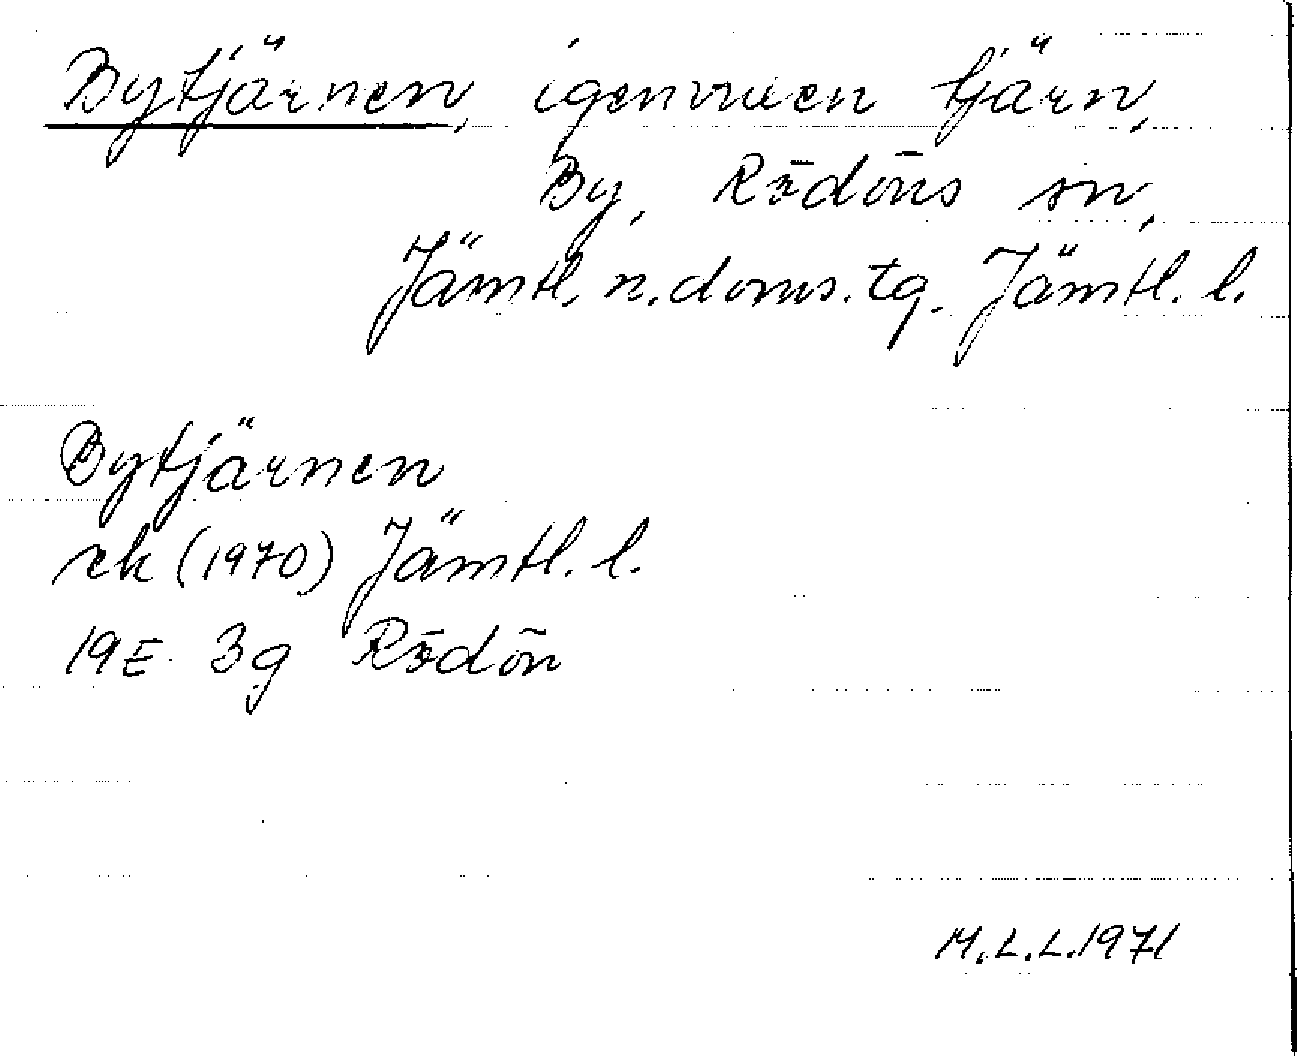 Bytjärnen, igenvuxen tjärn,
By, Rödöns sn,
Jämtl. n. doms. tg. Jämtl. l.
Bytjärnen
rk (1970) Jämtl. l.
19E 3g Rödön
M.L.L. 1971